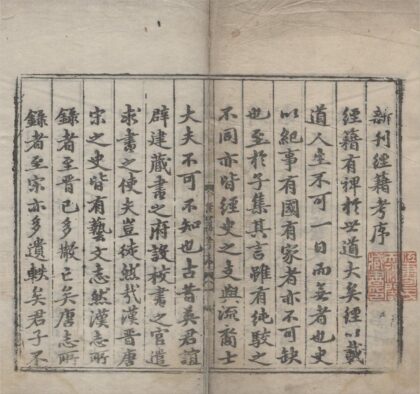 新刊經籍考序
經籍有裨於世道大矣經以載
道人生不可一日而無者也史
以紀事有國有家者亦不可缺
也至於子集其言雖有純駁之
不同亦皆經史之支與流裔士
大夫不可不知也古昔英君誼
辟建藏書之府設校書之官遣
求書之使夫豈徒然哉漢晉唐
宋之史皆有藝文志然漢志所
錄者至晉已多散亡矣唐志所
錄者至宋亦多遺軼矣君子不